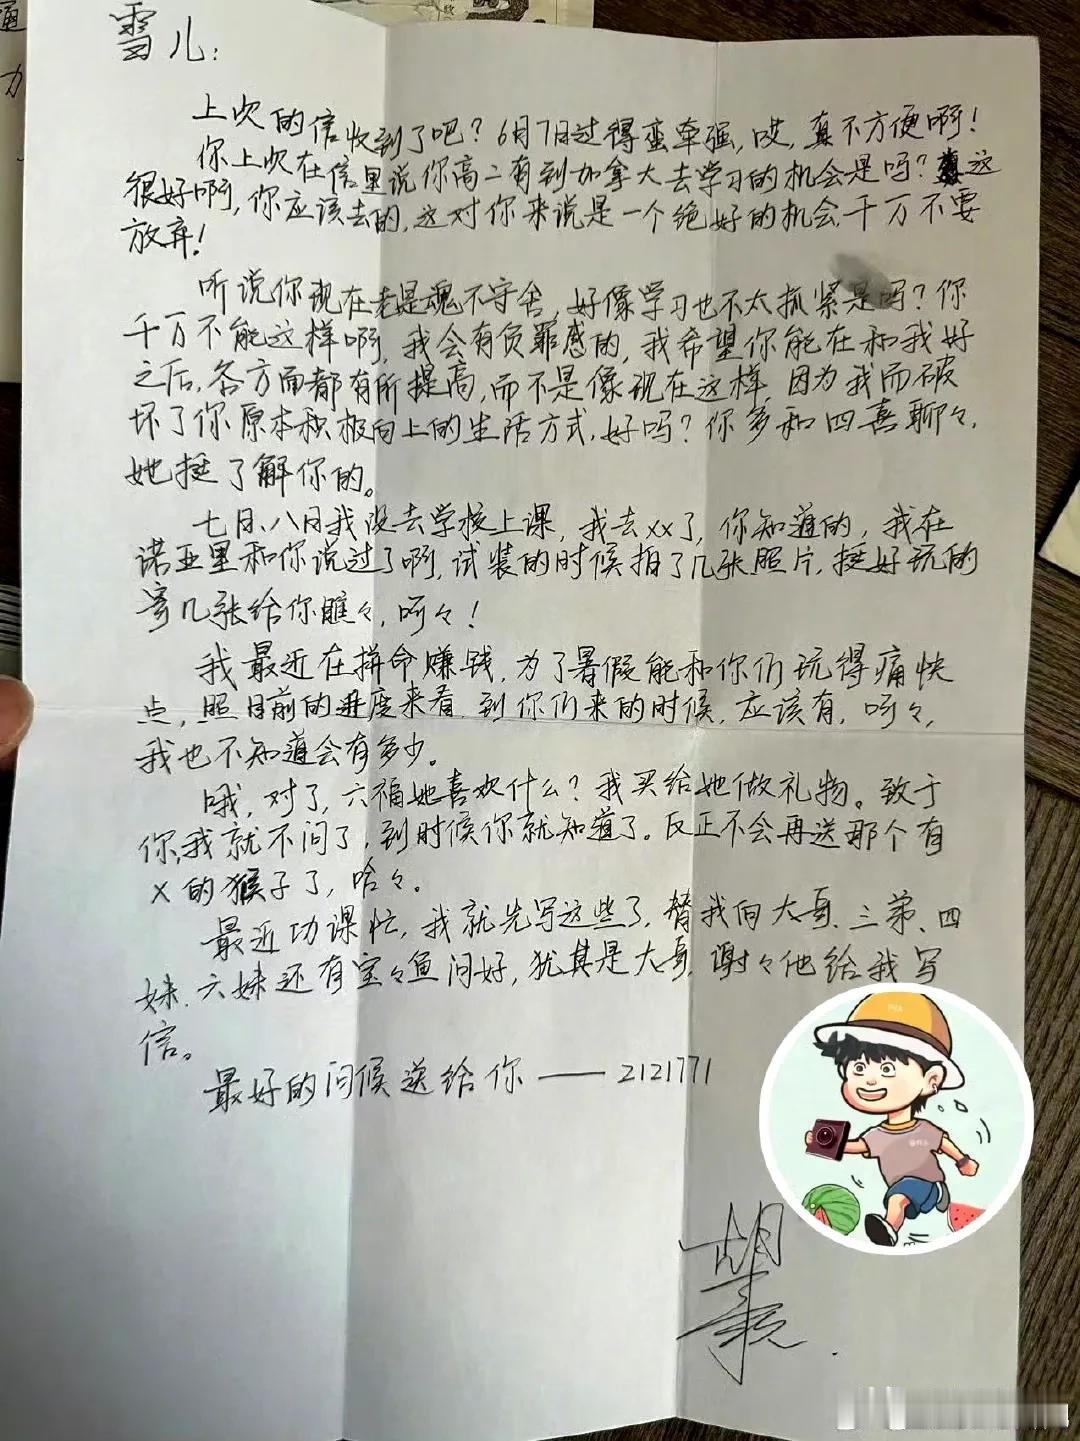 雪儿:
上次的信收到了吧?6月7日过得蛮牵强,哎,真不方便啊!
你上次在信里说你高二有到加拿大去学习的机会是吗?这
很好啊,你应该去的,这对你来说是一个绝好的机会千万不要
放弃!
听说你现在老是魂不守舍,好像学习也不太抓紧是吗?你
千万不能这样啊,我会有负罪感的,我希望你能在和我好
之后,各方面都有所提高,而不是像现在这样,因为我而破
坏了你原本积极向上的生活方式,好吗?你多和四喜聊々,
她挺了解你的。
七日、八日我没去学校上课,我去xx了,你知道的,我在
诺亚里和你说过了啊,试装的时候拍了几张照片,挺好玩的
寄几张给你瞧々,呵々!
我最近在拼命赚钱,为了暑假能和你们玩得痛快
点,照目前的进度来看,到你们来的时候,应该有,呵々,
我也不知道会有多少。
哦,对了,六福她喜欢什么?我买给她做礼物。致于
你,我就不问了,到时候你就知道了。反正不会再送那个有
X的猴子了,哈々。
最近功课忙,我就先写这些了,替我向大哥、三弟、四
妹、六妹还有宝々鱼问好,犹其是大哥,谢々他给我写
信。
最好的问候送给你——2121771
胡